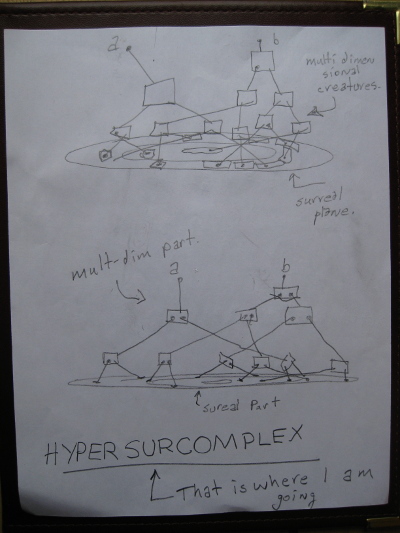 a
b
multi dimen
sional
creatures.
surreal
plane.
mult-dim part.
a
b
sureal Part
HYPERSURCOMPLEX
That is where I am
going